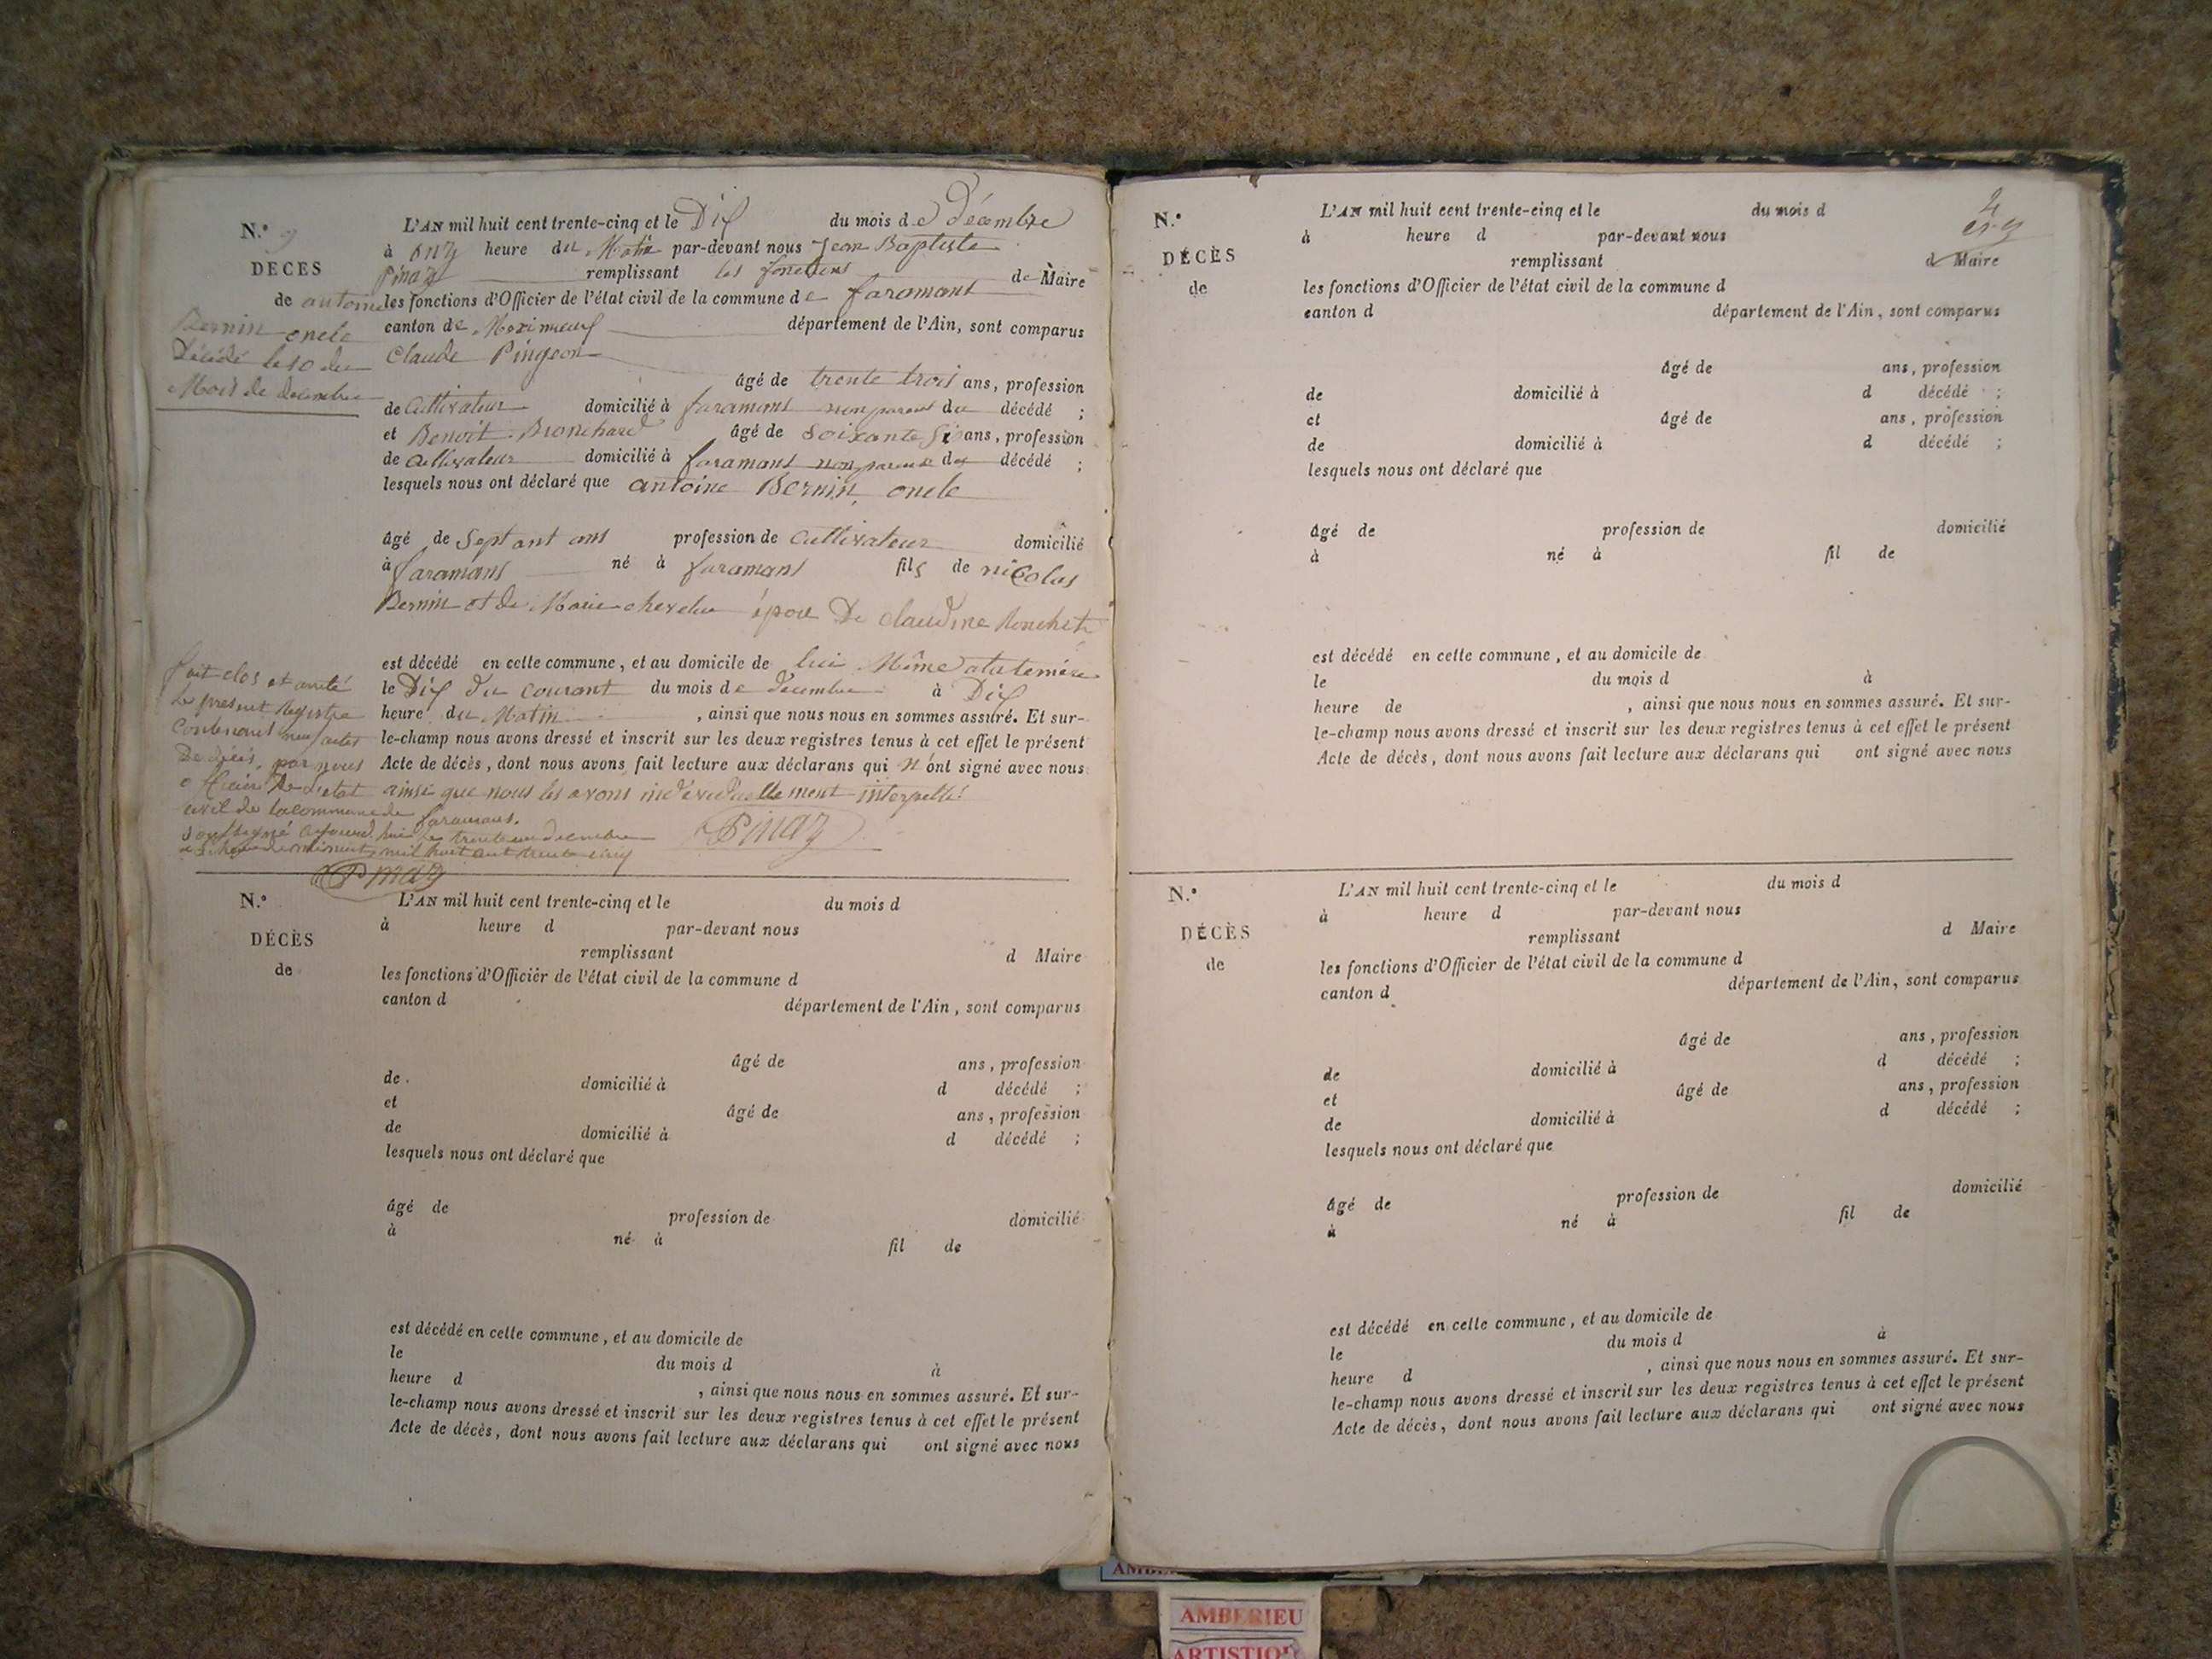 N.o 9
DÉCÈS
de antoine
Bernin oncle
Décédé le 10 du
Mois de décembre
L'AN mil huit cent trente-cinq et le Dix du mois de Décembre
à onz heure du Matin par-devant nous Jean Baptiste
Pinaz remplissant les fonctions de Maire
les fonctions d'Officier de l'état civil de la commune de faramans
canton de Meximieux département de l'Ain, sont comparus
Claude Pingeon
âgé de trente trois ans, profession
de Cultivateur domicilié à faramans non parent du décédé ;
et Benoit Bronchard âgé de Soixante Six ans, profession
de Cultivateur domicilié à faramans non parent du décédé ;
lesquels nous ont déclaré que antoine Bernin oncle
âgé de Septant ans profession de Cultivateur domicilié
à faramans né à faramans fils de nicolas
Bernin et de Marie chevelu époux De claudine
est décédé en cette commune, et au domicile de lui Même
le Dix du courant du mois de décembre à Dix
heure du Matin , ainsi que nous nous en sommes assuré. Et sur-
le-champ nous avons dressé et inscrit sur les deux registres tenus à cet effet le présent
Acte de décès, dont nous avons fait lecture aux déclarans qui n'ont signé avec nous
ainsi que nous les avons individuellement interpellé
Pinaz
fait clos et arrêté
le present Registre
Contenant neuf actes
De Décès, par nous
officier De l'etat
civil de la commune de faramans.
Soussigné aujourd'hui le trente un décembre
mil huit cent trente cinq
Pinaz
N.o
DÉCÈS
de
L'AN mil huit cent trente-cinq et le du mois d
à heure d par-devant nous
remplissant d Maire
les fonctions d'Officier de l'état civil de la commune d
canton d département de l'Ain, sont comparus
âgé de ans, profession
de domicilié à d décédé ;
et âgé de ans, profession
de domicilié à d décédé ;
lesquels nous ont déclaré que
âgé de profession de domicilié
à né à fil de
est décédé en cette commune, et au domicile de
le du mois d à
heure d , ainsi que nous nous en sommes assuré. Et sur-
le-champ nous avons dressé et inscrit sur les deux registres tenus à cet effet le présent
Acte de décès, dont nous avons fait lecture aux déclarans qui ont signé avec nous
N.o
DÉCÈS
de
L'AN mil huit cent trente-cinq et le du mois d
à heure d par-devant nous
remplissant d Maire
les fonctions d'Officier de l'état civil de la commune d
canton d département de l'Ain, sont comparus
âgé de ans, profession
de domicilié à d décédé ;
et âgé de ans, profession
de domicilié à d décédé ;
lesquels nous ont déclaré que
âgé de profession de domicilié
à né à fil de
est décédé en cette commune, et au domicile de
le du mois d à
heure de , ainsi que nous nous en sommes assuré. Et sur-
le-champ nous avons dressé et inscrit sur les deux registres tenus à cet effet le présent
Acte de décès, dont nous avons fait lecture aux déclarans qui ont signé avec nous
N.o
DÉCÈS
de
L'AN mil huit cent trente-cinq et le du mois d
à heure d par-devant nous
remplissant d Maire
les fonctions d'Officier de l'état civil de la commune d
canton d département de l'Ain, sont comparus
âgé de ans, profession
de domicilié à d décédé ;
et âgé de ans, profession
de domicilié à d décédé ;
lesquels nous ont déclaré que
âgé de profession de domicilié
à né à fil de
est décédé en cette commune, et au domicile de
le du mois d à
heure d , ainsi que nous nous en sommes assuré. Et sur-
le-champ nous avons dressé et inscrit sur les deux registres tenus à cet effet le présent
Acte de décès, dont nous avons fait lecture aux déclarans qui ont signé avec nous
AMBERIEU